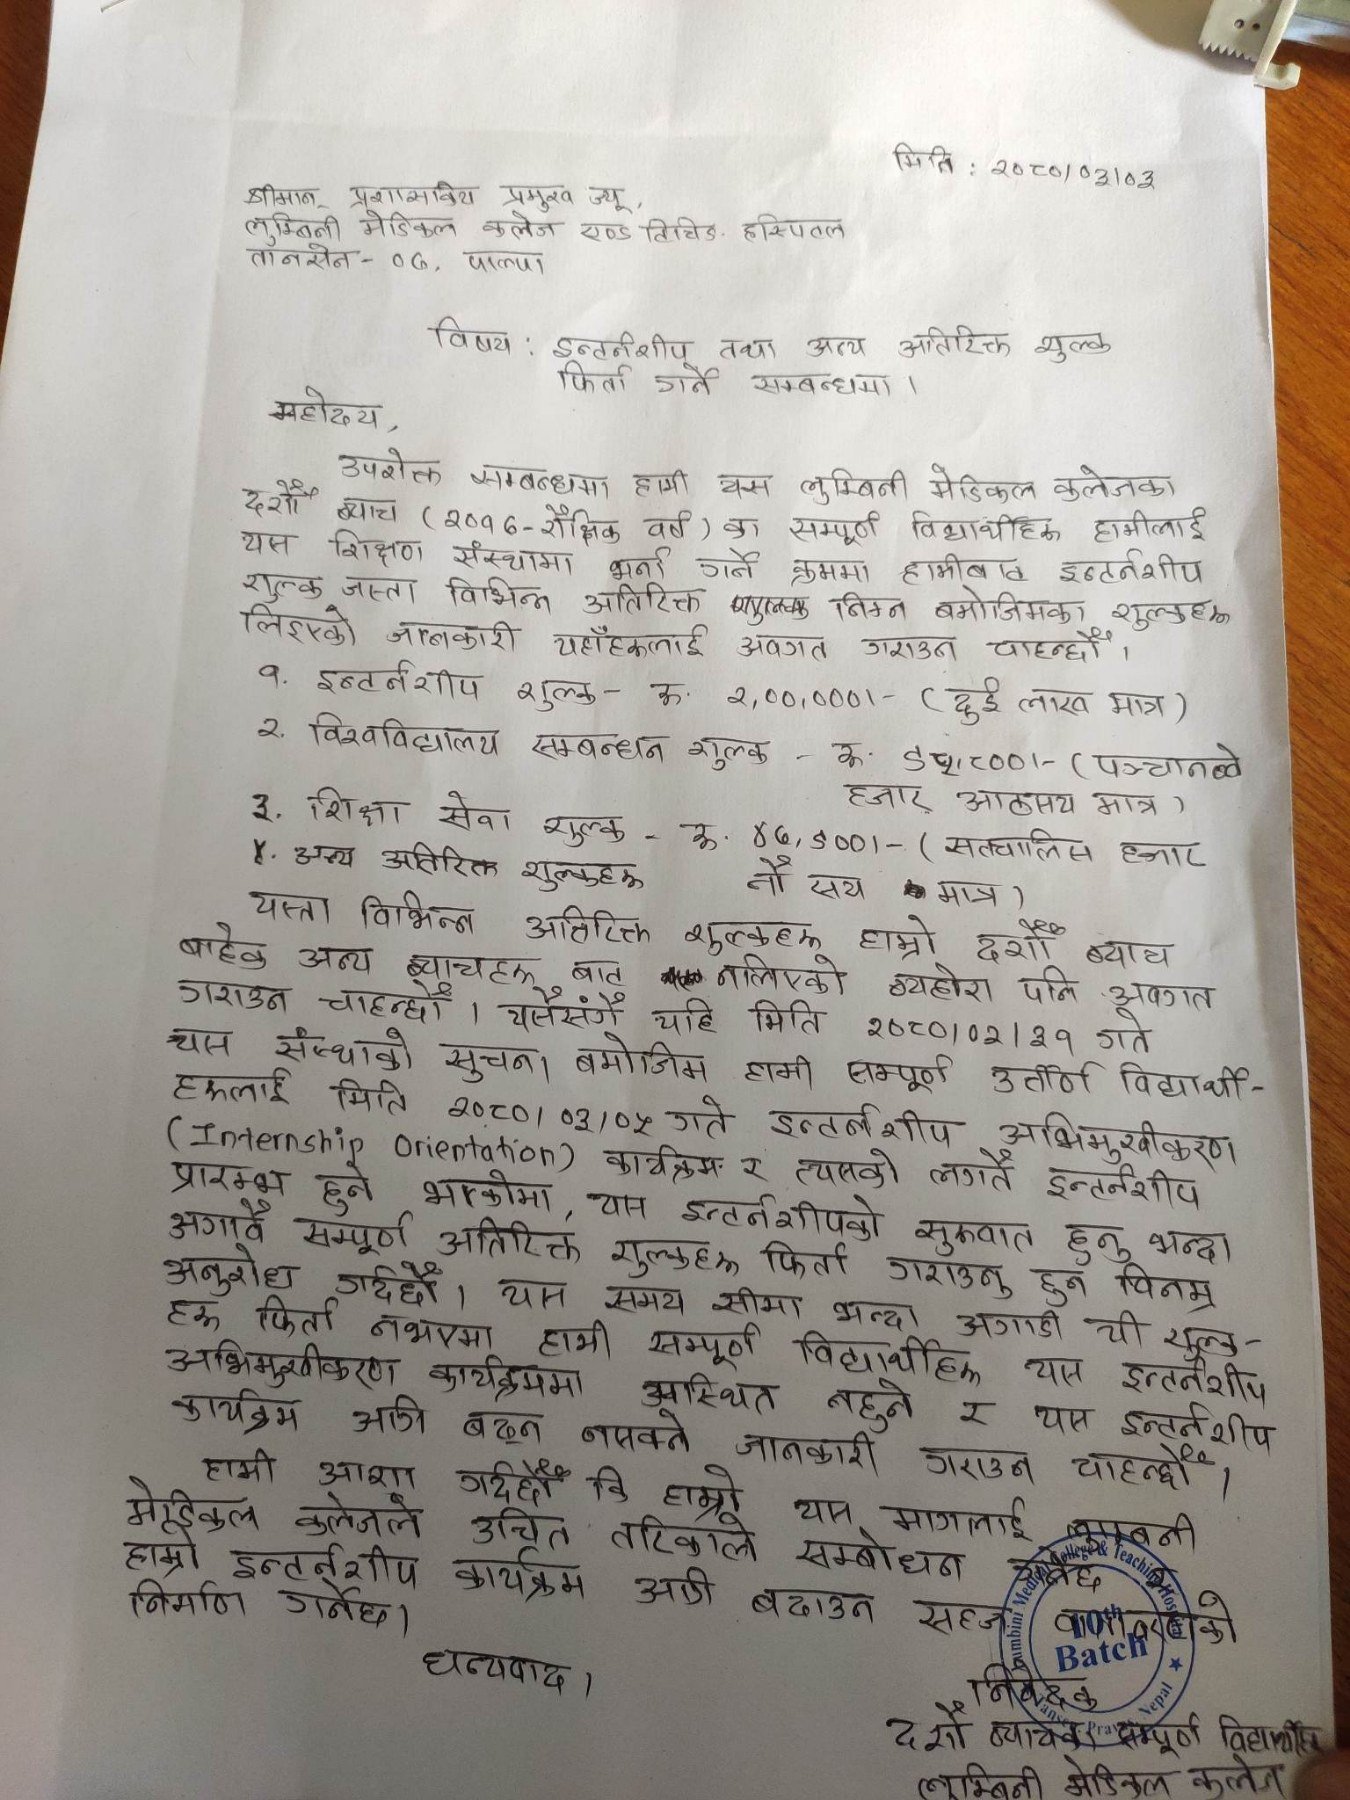 मिति : २०८०/०३/०३
श्रीमान् प्रशासकिय प्रमुख ज्यू,
लुम्बिनी मेडिकल कलेज एण्ड टिचिङ हस्पिटल
तानसेन - ०७, पाल्पा
विषय : इन्टर्नशीप तथा अन्य अतिरिक्त शुल्क
फिर्ता गर्ने सम्बन्धमा ।
महोदय,
उपरोक्त सम्बन्धमा हामी यस लुम्बिनी मेडिकल कलेजका
दशौँ ब्याच (२०१७ - शैक्षिक वर्ष) का सम्पूर्ण विद्यार्थीहरू हामीलाई
यस शिक्षण संस्थामा भर्ना गर्ने क्रममा हामीबाट इन्टर्नशीप
शुल्क जस्ता विभिन्न अतिरिक्त निम्न बमोजिमका शुल्कहरू
लिइएको जानकारी यहाँहरूलाई अवगत गराउन चाहन्छौँ ।
१. इन्टर्नशीप शुल्क - रू. २,००,०००/- (दुई लाख मात्र)
२. विश्वविद्यालय सम्बन्धन शुल्क - रू. ९५,८००/- (पञ्चानब्बे
हजार आठसय मात्र)
३. शिक्षा सेवा शुल्क - रू. ४७,९००/- (सतचालिस हजार
४. अन्य अतिरिक्त शुल्कहरू नौ सय मात्र)
यस्ता विभिन्न अतिरिक्त शुल्कहरू हाम्रो दशौँ ब्याच
बाहेक अन्य ब्याचहरू बाट नलिएको व्यहोरा पनि अवगत
गराउन चाहन्छौँ । यसैसंगै यहि मिति २०८०/०२/३१ गते
यस संस्थाको सुचना बमोजिम हामी सम्पूर्ण उर्तीण विद्यार्थी-
हरूलाई मिति २०८०/०३/०५ गते इन्टर्नशीप अभिमुखीकरण
(Internship Orientation) कार्यक्रम र त्यसको लगतै इन्टर्नशीप
प्रारम्भ हुने भएकोमा, यस इन्टर्नशीपको सुरुवात हुनु भन्दा
अगावै सम्पूर्ण अतिरिक्त शुल्कहरू फिर्ता गराउनु हुन विनम्र
अनुरोध गर्दछौँ । यस समय सीमा भन्दा अगाडी यी शुल्क-
हरू फिर्ता नभएमा हामी सम्पूर्ण विद्यार्थीहरू यस इन्टर्नशीप
अभिमुखीकरण कार्यक्रममा नहुने र यस इन्टर्नशीप
कार्यक्रम अघी बढ्न नसक्ने जानकारी गराउन चाहन्छौँ ।
हामी आशा गर्दछौँ कि हाम्रो यस मागलाई लुम्बिनी
मेडिकल कलेजले उचित तरिकाले सम्बोधन गर्नेछ र
हाम्रो इन्टर्नशीप कार्यक्रम अघी बढाउन सहज वातावरणको
निर्माण गर्नेछ ।
धन्यवाद ।
Lumbini Medical College & Teaching Hospital
10th
Batch
Tansen, Pravas, Nepal
निवेदक
दशौँ ब्याचका सम्पूर्ण विद्यार्थीहरू
लुम्बिनी मेडिकल कलेज